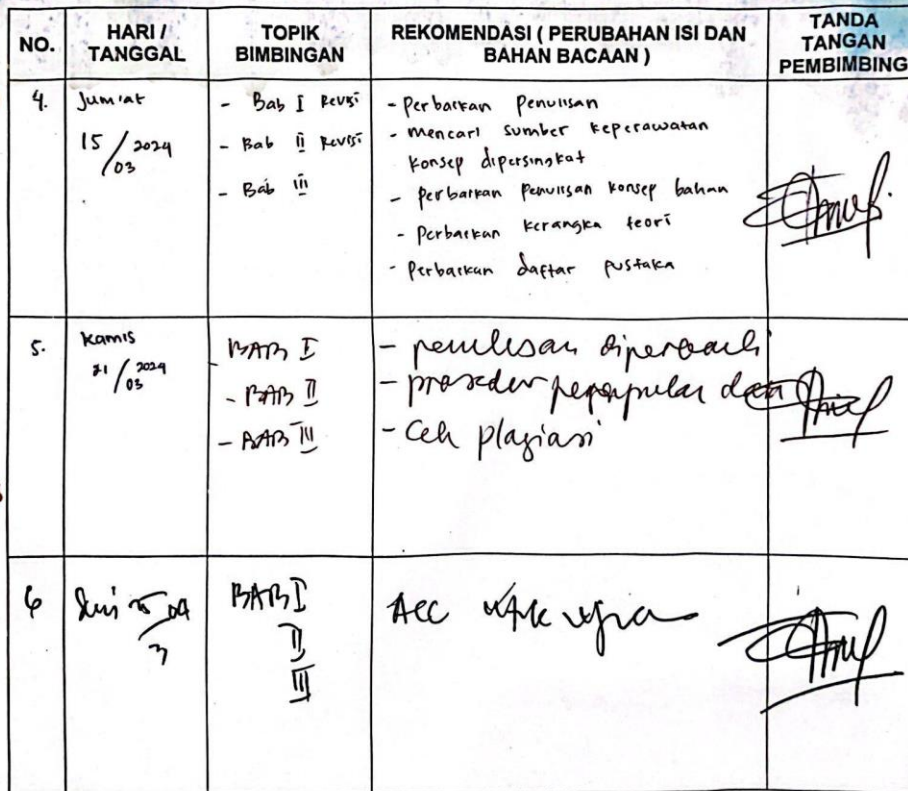 NO.
HARI /
TANGGAL
TOPIK
BIMBINGAN
REKOMENDASI ( PERUBAHAN ISI DAN
BAHAN BACAAN )
TANDA
TANGAN
PEMBIMBING
4.
Jum'at
15/03 2024
- Bab I Revisi
- Bab II Revisi
- Bab III
- Perbaikan Penulisan
- mencari sumber keperawatan
konsep dipersingkat
- Perbaikan Penulisan konsep bahan
- Perbaikan kerangka teori
- Perbaikan daftar pustaka
5.
Kamis
21/03 2024
BAB I
- BAB II
- BAB III
- penulisan diperbaiki
- prosedur data
- Cek plagiasi
6
BAB I
II
III
Acc